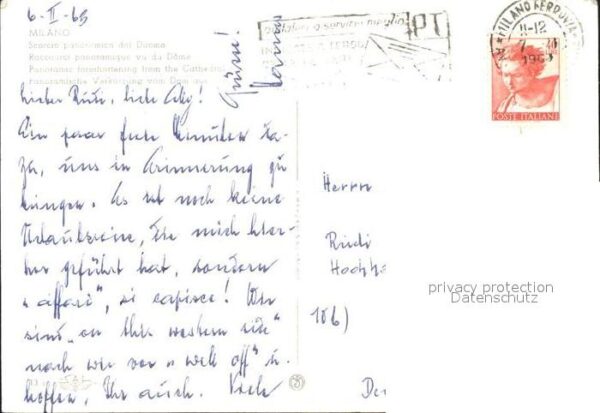 6-II-65
MILANO
Scorcio panoramico dal Duomo
Raccourci panoramique vu du Dôme
Panoramic foreshortening from the Cathedral
Panoramische Verkürzung vom Dom aus
Lieber Rudi, liebe Aby!
Ein paar freie Minuten da-
zu, uns in Erinnerung zu
bringen. Es ist noch keine
Urlaubsreise, die mich hier-
her geführt hat, sondern
"affari", si capisce! Wir
sind "on the western side"
nach wie vor "well off" u.
hoffen, Ihr auch. Viele
Grüße!
PT
MILANO FERROVIA
11-12
7.
POSTE ITALIANE
Herrn
Rudi
106)
privacy protection
Datenschutz